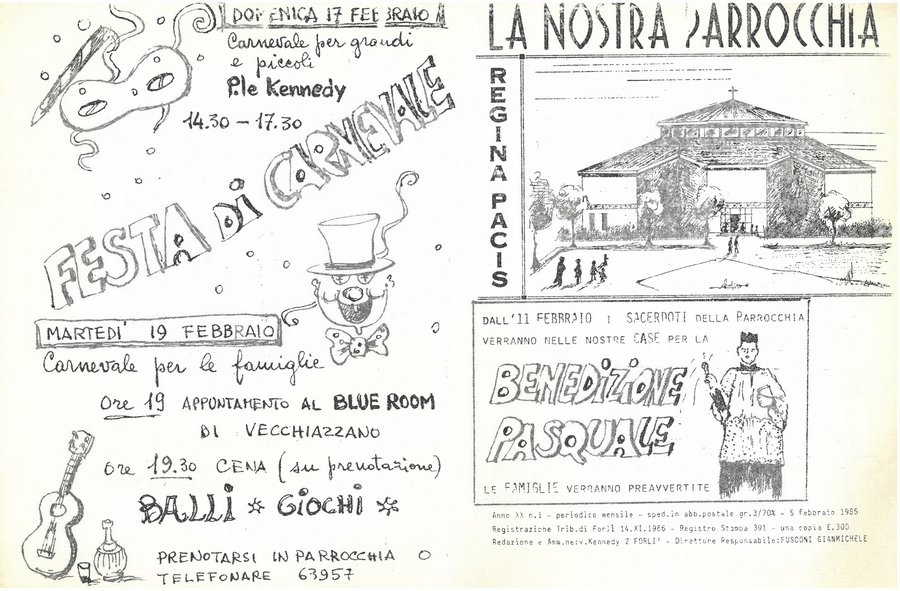 DOMENICA 17 FEBBRAIO
Carnevale per grandi
e piccoli
P.le Kennedy
14.30 - 17.30
FESTA DI CARNEVALE
MARTEDI' 19 FEBBRAIO
Carnevale per le famiglie
Ore 19 APPUNTAMENTO AL BLUE ROOM
DI VECCHIAZZANO
Ore 19.30 CENA (su prenotazione)
BALLI * GIOCHI *
PRENOTARSI IN PARROCCHIA O
TELEFONARE 63957
LA NOSTRA PARROCCHIA
REGINA PACIS
DALL'11 FEBBRAIO I SACERDOTI DELLA PARROCCHIA
VERRANNO NELLE NOSTRE CASE PER LA
BENEDIZIONE
PASQUALE
LE FAMIGLIE VERRANNO PREAVVERTITE
Anno XX n.1 - periodico mensile - sped.in abb.postale gr.3/70% - 5 Febbraio 1985
Registrazione Trib.di Forlì 14.XI.1966 - Registro Stampa 391 - una copia £.300
Redazione e Amm.ne:v.Kennedy 2 FORLI' - Direttore Responsabile:FUSCONI GIANMICHELE